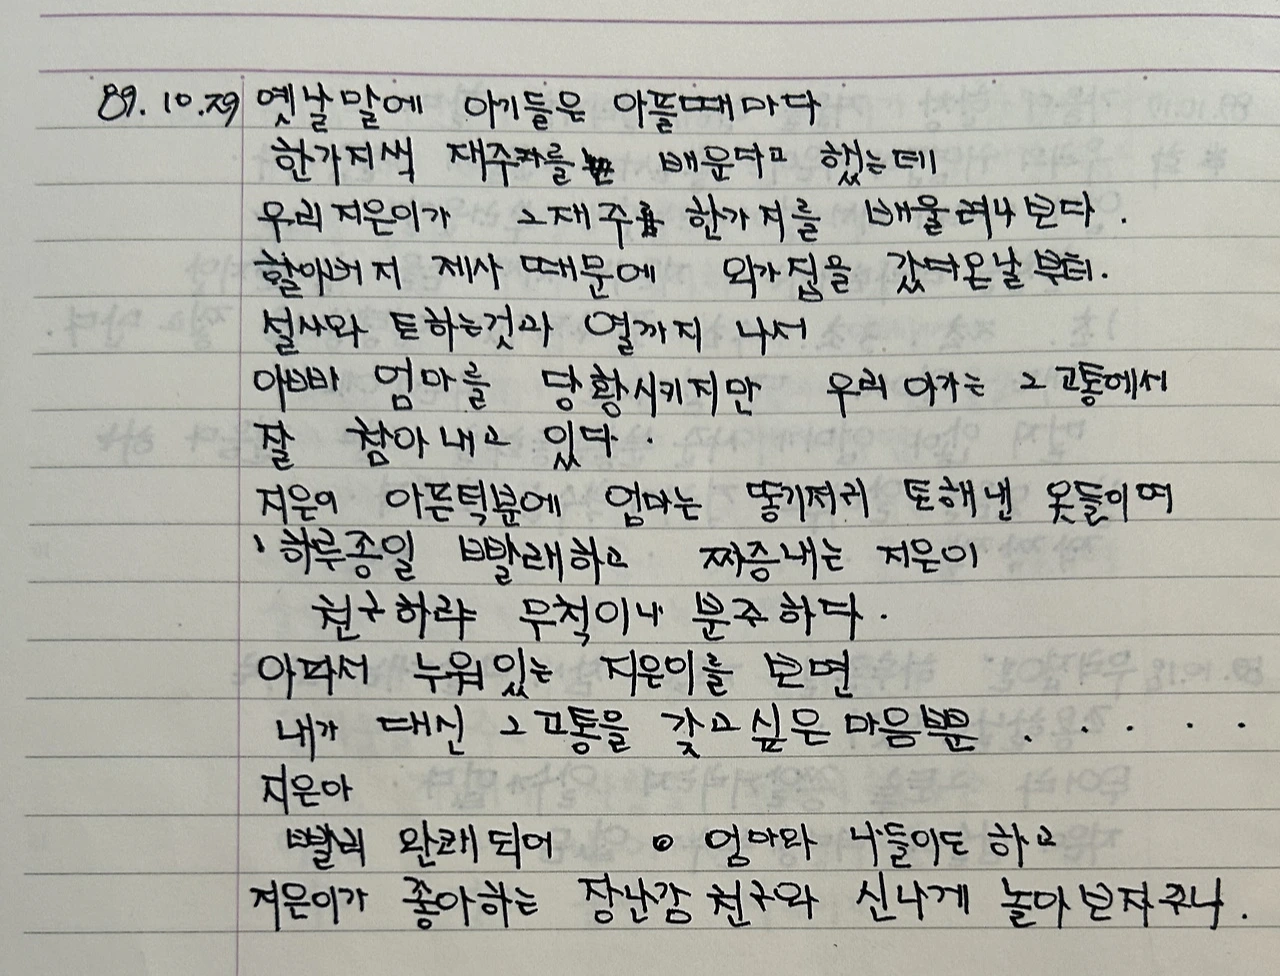 89. 10. 29 옛날 말에 아기들은 아플때마다
한가지씩 재주를 배운다고 했는데
우리 지은이가 그재주를 한가지를 배울려나 보다.
할아버지 제사 때문에 외가집을 갔다온날 부터.
설사와 토하는것과 열까지 나서
아빠 엄마를 당황시키지만 우리 아가는 그 고통에서
잘 참아 내고 있다.
지은이 아픈턱분에 엄마는 똥기저귀 토해낸 옷들이며
하루종일 빨래하고 짜증내는 지은이
친구하랴 무척이나 분주하다.
아파서 누워있는 지은이를 보면
내가 대신 그 고통을 갖고 싶은 마음뿐 . . . . .
지은아
빨리 완쾌되어 엄마와 나들이도 하고
지은이가 좋아하는 장난감 친구와 신나게 놀아 보자꾸나.